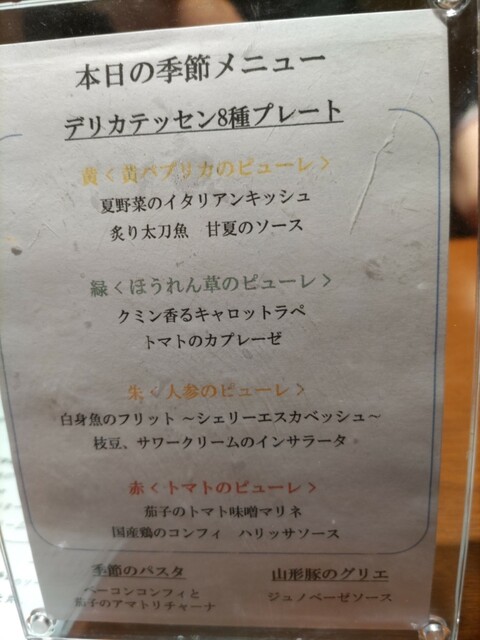 本日の季節メニュー
デリカテッセン8種プレート
黄〈黄パプリカのピューレ〉
夏野菜のイタリアンキッシュ
炙り太刀魚　甘夏のソース
緑〈ほうれん草のピューレ〉
クミン香るキャロットラペ
トマトのカプレーゼ
朱〈人参のピューレ〉
白身魚のフリット ～シェリーエスカベッシュ～
枝豆、サワークリームのインサラータ
赤〈トマトのピューレ〉
茄子のトマト味噌マリネ
国産鶏のコンフィ　ハリッサソース
季節のパスタ
ベーコンコンフィと
茄子のアマトリチャーナ
山形豚のグリエ
ジュノベーゼソース